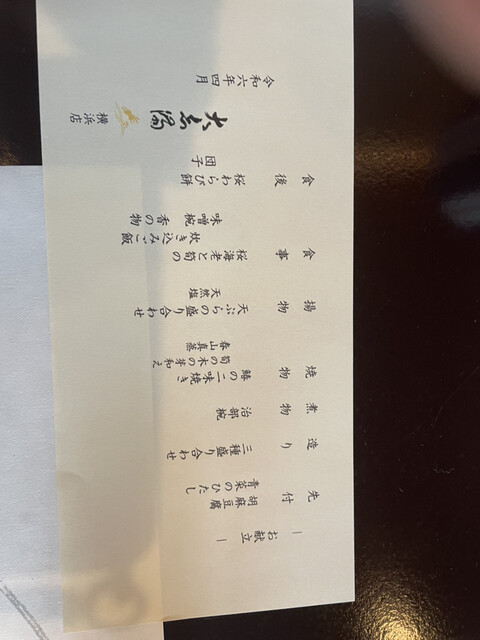 ― お献立 ―
先付
胡麻豆腐
青菜のひたし
造り
三種盛り合わせ
煮物
治部椀
焼物
鰆の二味焼き
筍の木の芽和え
春山真蒸
揚物
天ぷらの盛り合わせ
天然塩
食事
桜海老と筍の
炊き込みご飯
味噌椀 香の物
食後
桜わらび餅
団子
令和六年四月
大志満
横浜店